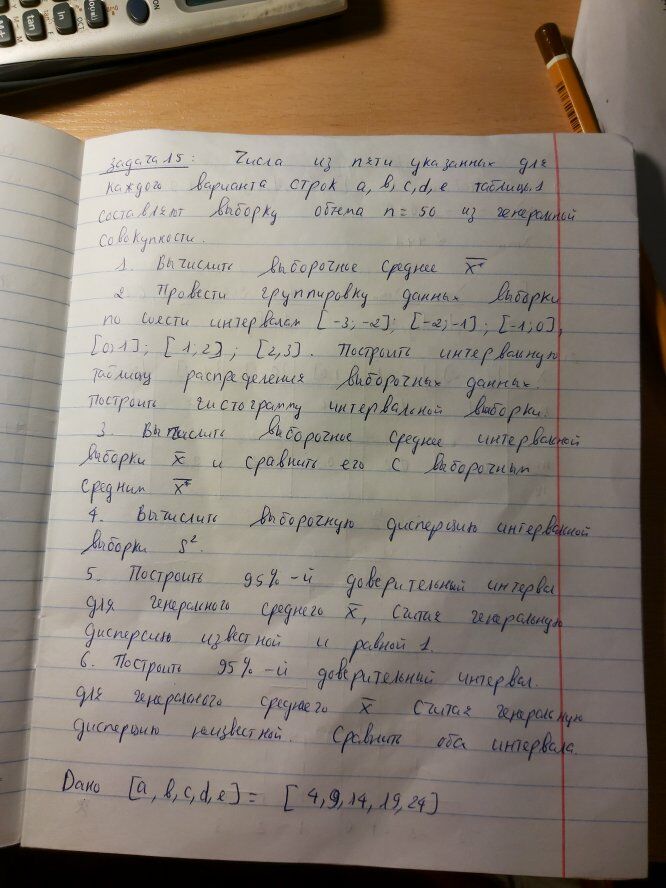 ON
tan
ln
Задача 15: Числа из пяти указанных для
каждого варианта строк a, b, c, d, e таблицы 1
составляют выборку объема n = 50 из генеральной
совокупности.
1. Вычислить выборочное среднее x̄*
2 Провести группировку данных выборки
по шести интервалам [-3;-2]; [-2;-1]; [-1;0],
[0;1]; [1;2]; [2,3]. Построить интервальную
таблицу распределения выборочных данных.
Построить гистограмму интервальной выборки.
3. Вычислить выборочное среднее интервальной
выборки x̄ и сравнить его с выборочным
средним x̄*
4. Вычислить выборочную дисперсию интервальной
выборки S².
5. Построить 95%-й доверительный интервал
для генерального среднего x̄, считая генеральную
дисперсию известной и равной 1.
6. Построить 95%-й доверительный интервал.
для генерального среднего x̄ считая генеральную
дисперсию неизвестной. Сравнить оба интервала.
Дано [a, b, c, d, e] = [4, 9, 14, 19, 24]